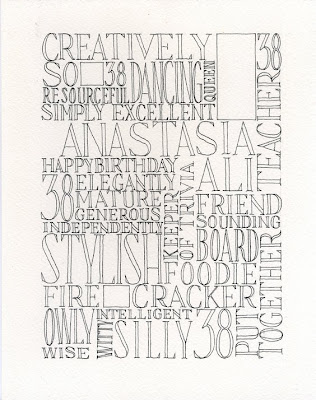 CREATIVELY
38
SO 38 DANCING
QUEEN
RESOURCEFUL
SIMPLY EXCELLENT
TEACHER
ANASTASIA
HAPPY BIRTHDAY
ALI
38 ELEGANTLY
MATURE
GENEROUS
INDEPENDENTLY
KEEPER
OF TRIVIA
FRIEND
SOUNDING
BOARD
STYLISH
FOODIE
FIRE CRACKER
PUT
TOGETHER
OWLY
WISE
WITTY
INTELLIGENT
SILLY 38